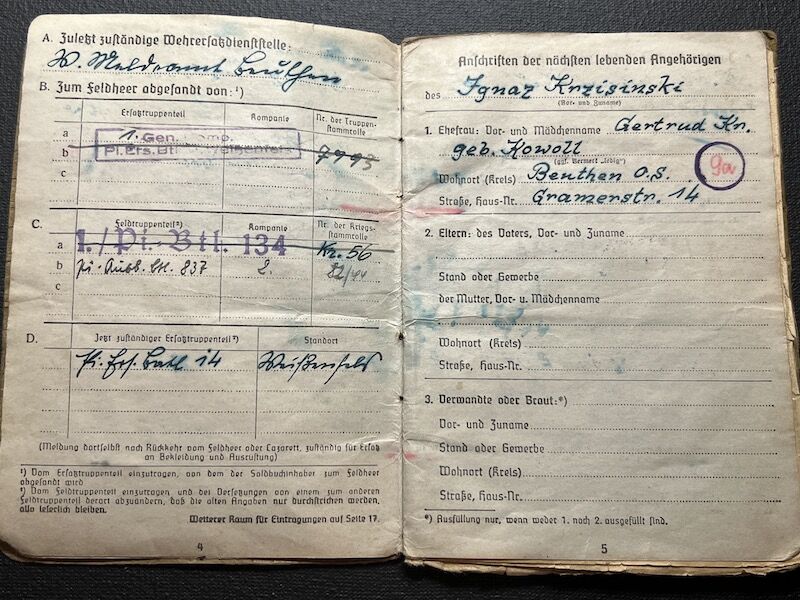 A. Zuletzt zuständige Wehrersatzdienststelle:
W. Meldeamt Beuthen
B. Zum Feldheer abgesandt von:¹)
Ersatztruppenteil Kompanie Nr. der Truppenstammrolle
a 1. Gen. Komp.
b Pi. Ers. Btl. 7993
c
C. Feldtruppenteil²) Kompanie Nr. der Kriegsstammrolle
a 1./Pi.-Btl. 134 Kr. 56
b Pi. Ausb. Btl. 837 2. 82/44
c
D. Jetzt zuständiger Ersatztruppenteil²) Standort
Pi. Ers. Batl 14 Weißenfels
(Meldung dortselbst nach Rückkehr vom Feldheer oder Lazarett, zuständig für Ersatz
an Bekleidung und Ausrüstung)
¹) Vom Ersatztruppenteil einzutragen, von dem der Soldbuchinhaber zum Feldheer
abgesandt wird
²) Vom Feldtruppenteil einzutragen und bei Versetzungen von einem zum anderen
Feldtruppenteil derart abzuändern, daß die alten Angaben nur durchstrichen werden,
also leserlich bleiben.
Weiterer Raum für Eintragungen auf Seite 17.
4
Anschriften der nächsten lebenden Angehörigen
des Ignaz Krzisinski
(Vor- und Zuname)
1. Ehefrau: Vor- und Mädchenname Gertrud Kr.
geb. Kowoll
(ggf. Vermerk „ledig“)
Wohnort (Kreis) Beuthen O.S.
9a
Straße, Haus-Nr. Gramerstr. 14
2. Eltern: des Vaters, Vor- und Zuname
Stand oder Gewerbe
der Mutter, Vor- u. Mädchenname
Wohnort (Kreis)
Straße, Haus-Nr.
3. Verwandte oder Braut:*)
Vor- und Zuname
Stand oder Gewerbe
Wohnort (Kreis)
Straße, Haus-Nr.
*) Ausfüllung nur, wenn weder 1. noch 2. ausgefüllt sind.
5